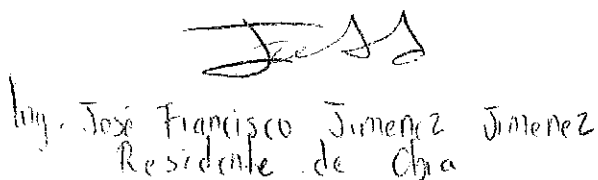 Ing. José Francisco Jimenez Jimenez
Residente de Obra